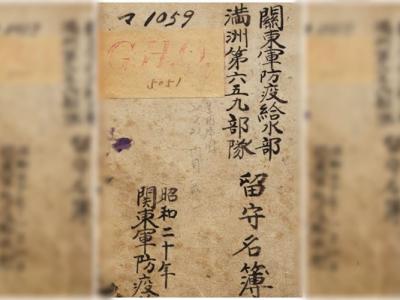 マ1059
5051
關東軍防疫給水部
満洲第六五九部隊
留守名簿
昭和二十年
関東軍防疫